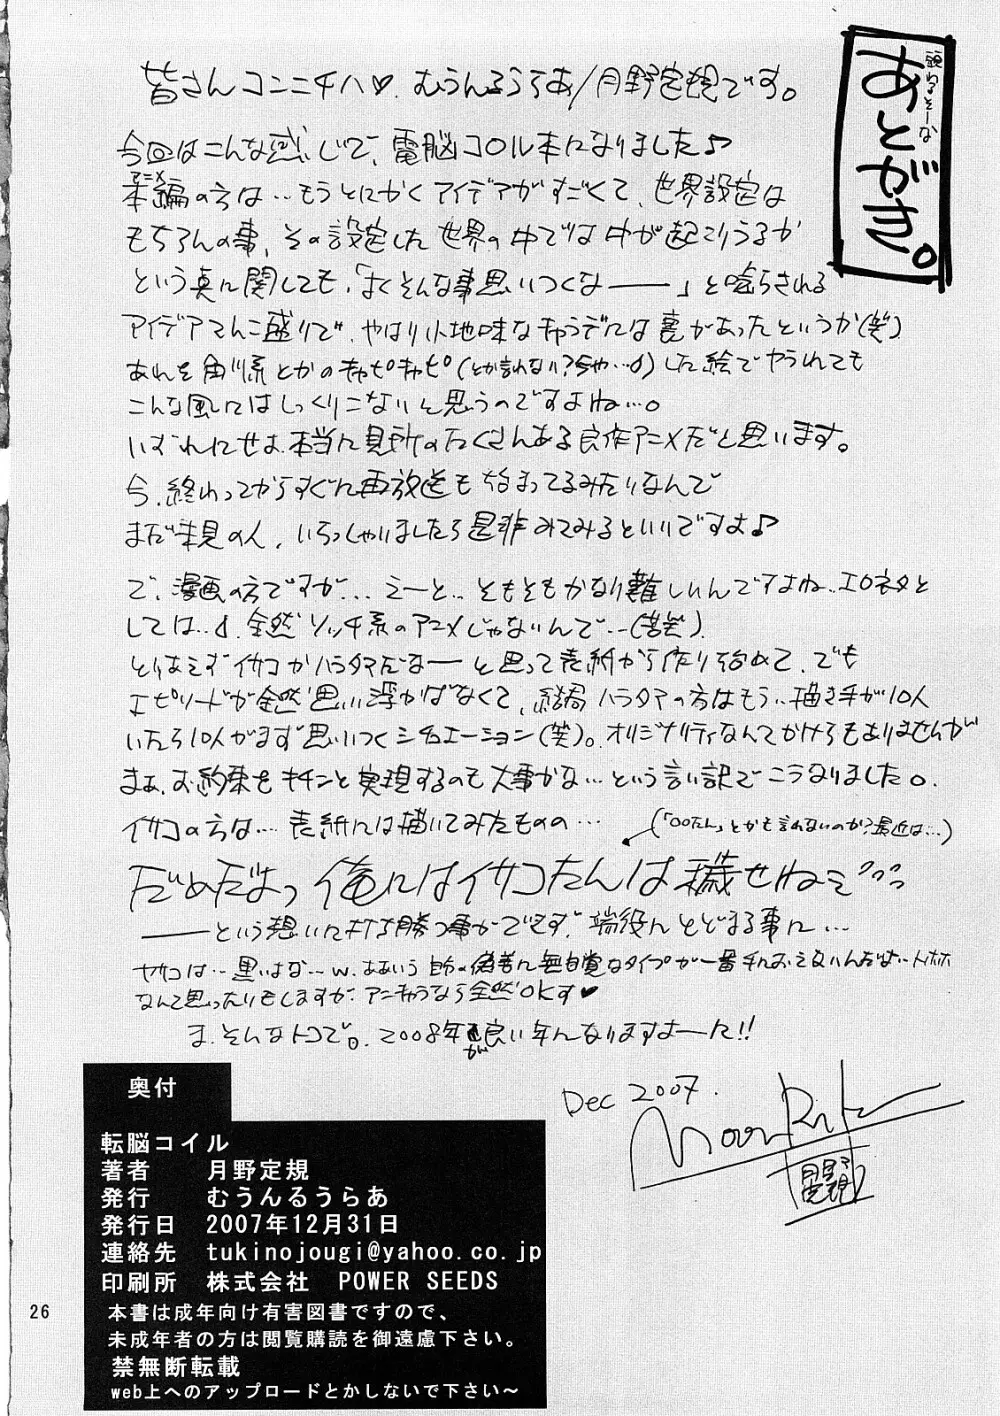 あとがき。
皆さんコンニチハ♡. むうんるうらあ/月野定規です。
今回はこんな感じで、電脳コイル本になりました♪
本編の方は…もうとにかくアイデアがすごくて、世界設定は
アニメ
もちろんの事、その設定した世界の中では何が起こりうるか
という点に関しても、「よくそんな事思いつくなーー」と唸らされる
アイデアてんこ盛りで、やはり地味なキャラデには裏があったというか(笑)
あれを角川系とかのキャピキャピ(とか言わない?今や…)した絵でやられても
こんな風にはしっくりこないと思うのですよね…。
いずれにせよ、本当に見所のたくさんある良作アニメだと思います。
今、終わってからすぐに再放送も始まってるみたいなんで
まだ未見の人、いらっしゃいましたら是非みてみるといいですよ♪
で、漫画の方ですが…えーと…そもそもかなり難しいんですよね…エロネタと
しては…。全然ソッチ系のアニメじゃないんで…(苦笑).
とりあえずイサコがハラタマだなーーと思って表紙から作り始めて、でも
エピソードが全然思い浮かばなくて、結局ハラタマの方はもう…描き手が10人
いたら10人がまず思いつくシチュエーション(笑)。オリジナリティなんてかけらもありませんが
まぁ、お約束をキチンと実現するのも大事かな…という言い訳でこうなりました。
イサコの方は…表紙には描いてみたものの…
(「○○たん」とかも言わないのか?最近は…)
だめだよっ俺にはイサコたんは穢せねぇ゙゙゙っ
――という想いに打ち勝つ事ができず、端役にとどまる事に…
ヤサコは…黒いよな…w. ああいう自分の偽善に無自覚なタイプが一番手におえないんだよ…トホホ
なんて思ったりもしますが、アニキャラなら全然OKす♥
ま、そんなトコで。2008年が良い年になりますよーに!!
Dec 2007.
Moon Ruler
月野定規
奥付
転脳コイル
著者 月野定規
発行 むうんるうらあ
発行日 2007年12月31日
連絡先 tukinojougi@yahoo.co.jp
印刷所 株式会社 POWER SEEDS
本書は成年向け有害図書ですので、
未成年者の方は閲覧購読を御遠慮下さい。
禁無断転載
web上へのアップロードとかしないで下さい～
26